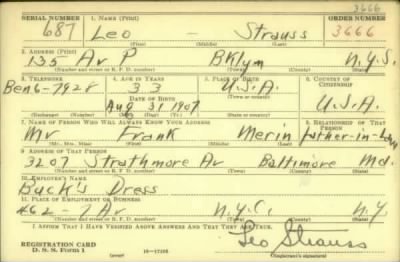 3666
SERIAL NUMBER 1. NAME (Print) ORDER NUMBER
687 Leo - Strauss 3666
(First) (Middle) (Last)
2. ADDRESS (Print)
135 Av P Bklyn N.Y.S.
(Number and street or R. F. D. number) (Town) (County) (State)
3. TELEPHONE 4. AGE IN YEARS 5. PLACE OF BIRTH 6. COUNTRY OF CITIZENSHIP
Ben 6-7928 33 U.S.A.
DATE OF BIRTH
Aug 31 1907 U.S.A.
(Exchange) (Number) (Mo.) (Day) (Yr.) (State or country)
7. NAME OF PERSON WHO WILL ALWAYS KNOW YOUR ADDRESS 8. RELATIONSHIP OF THAT PERSON
Mr Frank Merin father-in-law
(Mr., Mrs., Miss) (First) (Middle) (Last)
9. ADDRESS OF THAT PERSON
3207 Strathmore Av Baltimore Md.
(Number and street or R. F. D. number) (Town) (County) (State)
10. EMPLOYER'S NAME
Buck's Dress
11. PLACE OF EMPLOYMENT OR BUSINESS
462-7 Av N.Y.C. N.Y.
(Number and street or R. F. D. number) (Town) (County) (State)
I AFFIRM THAT I HAVE VERIFIED ABOVE ANSWERS AND THAT THEY ARE TRUE.
REGISTRATION CARD
D. S. S. Form 1 16-17105 Leo Strauss
(Registrant's signature)